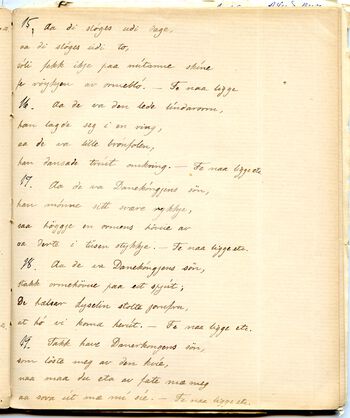 15, Aa di sloges udi dage,
aa di sloges udi to,
soli fekk ikje paa nutanne skine
fe röykjen av ormeblo. — Fe naa ligge
16. Aa de va den lede lindarorm,
han lagde seg i en ring,
aa de va lille bronfolen,
han dansade trint omkring. — Fe naa ligge etc
17. Aa de va Danekongjens sön,
han monne sitt svære rykkje,
saa höggje en ormens hovue av
aa derte i tusen stykkje. — Fe naa ligge etc.
18. Aa de va Danekongjens sön,
takk ormehövue paa eit spjut;
De helser Lyselin stolte jomfru,
at hó vi koma herút. — Fe naa ligge etc.
19. Takk have Danerkongens sön,
som löste meg av den kvie,
naa maa du eta av fate mæ meg
aa sova ut mæ mi sie. — Fe naa ligge etc.